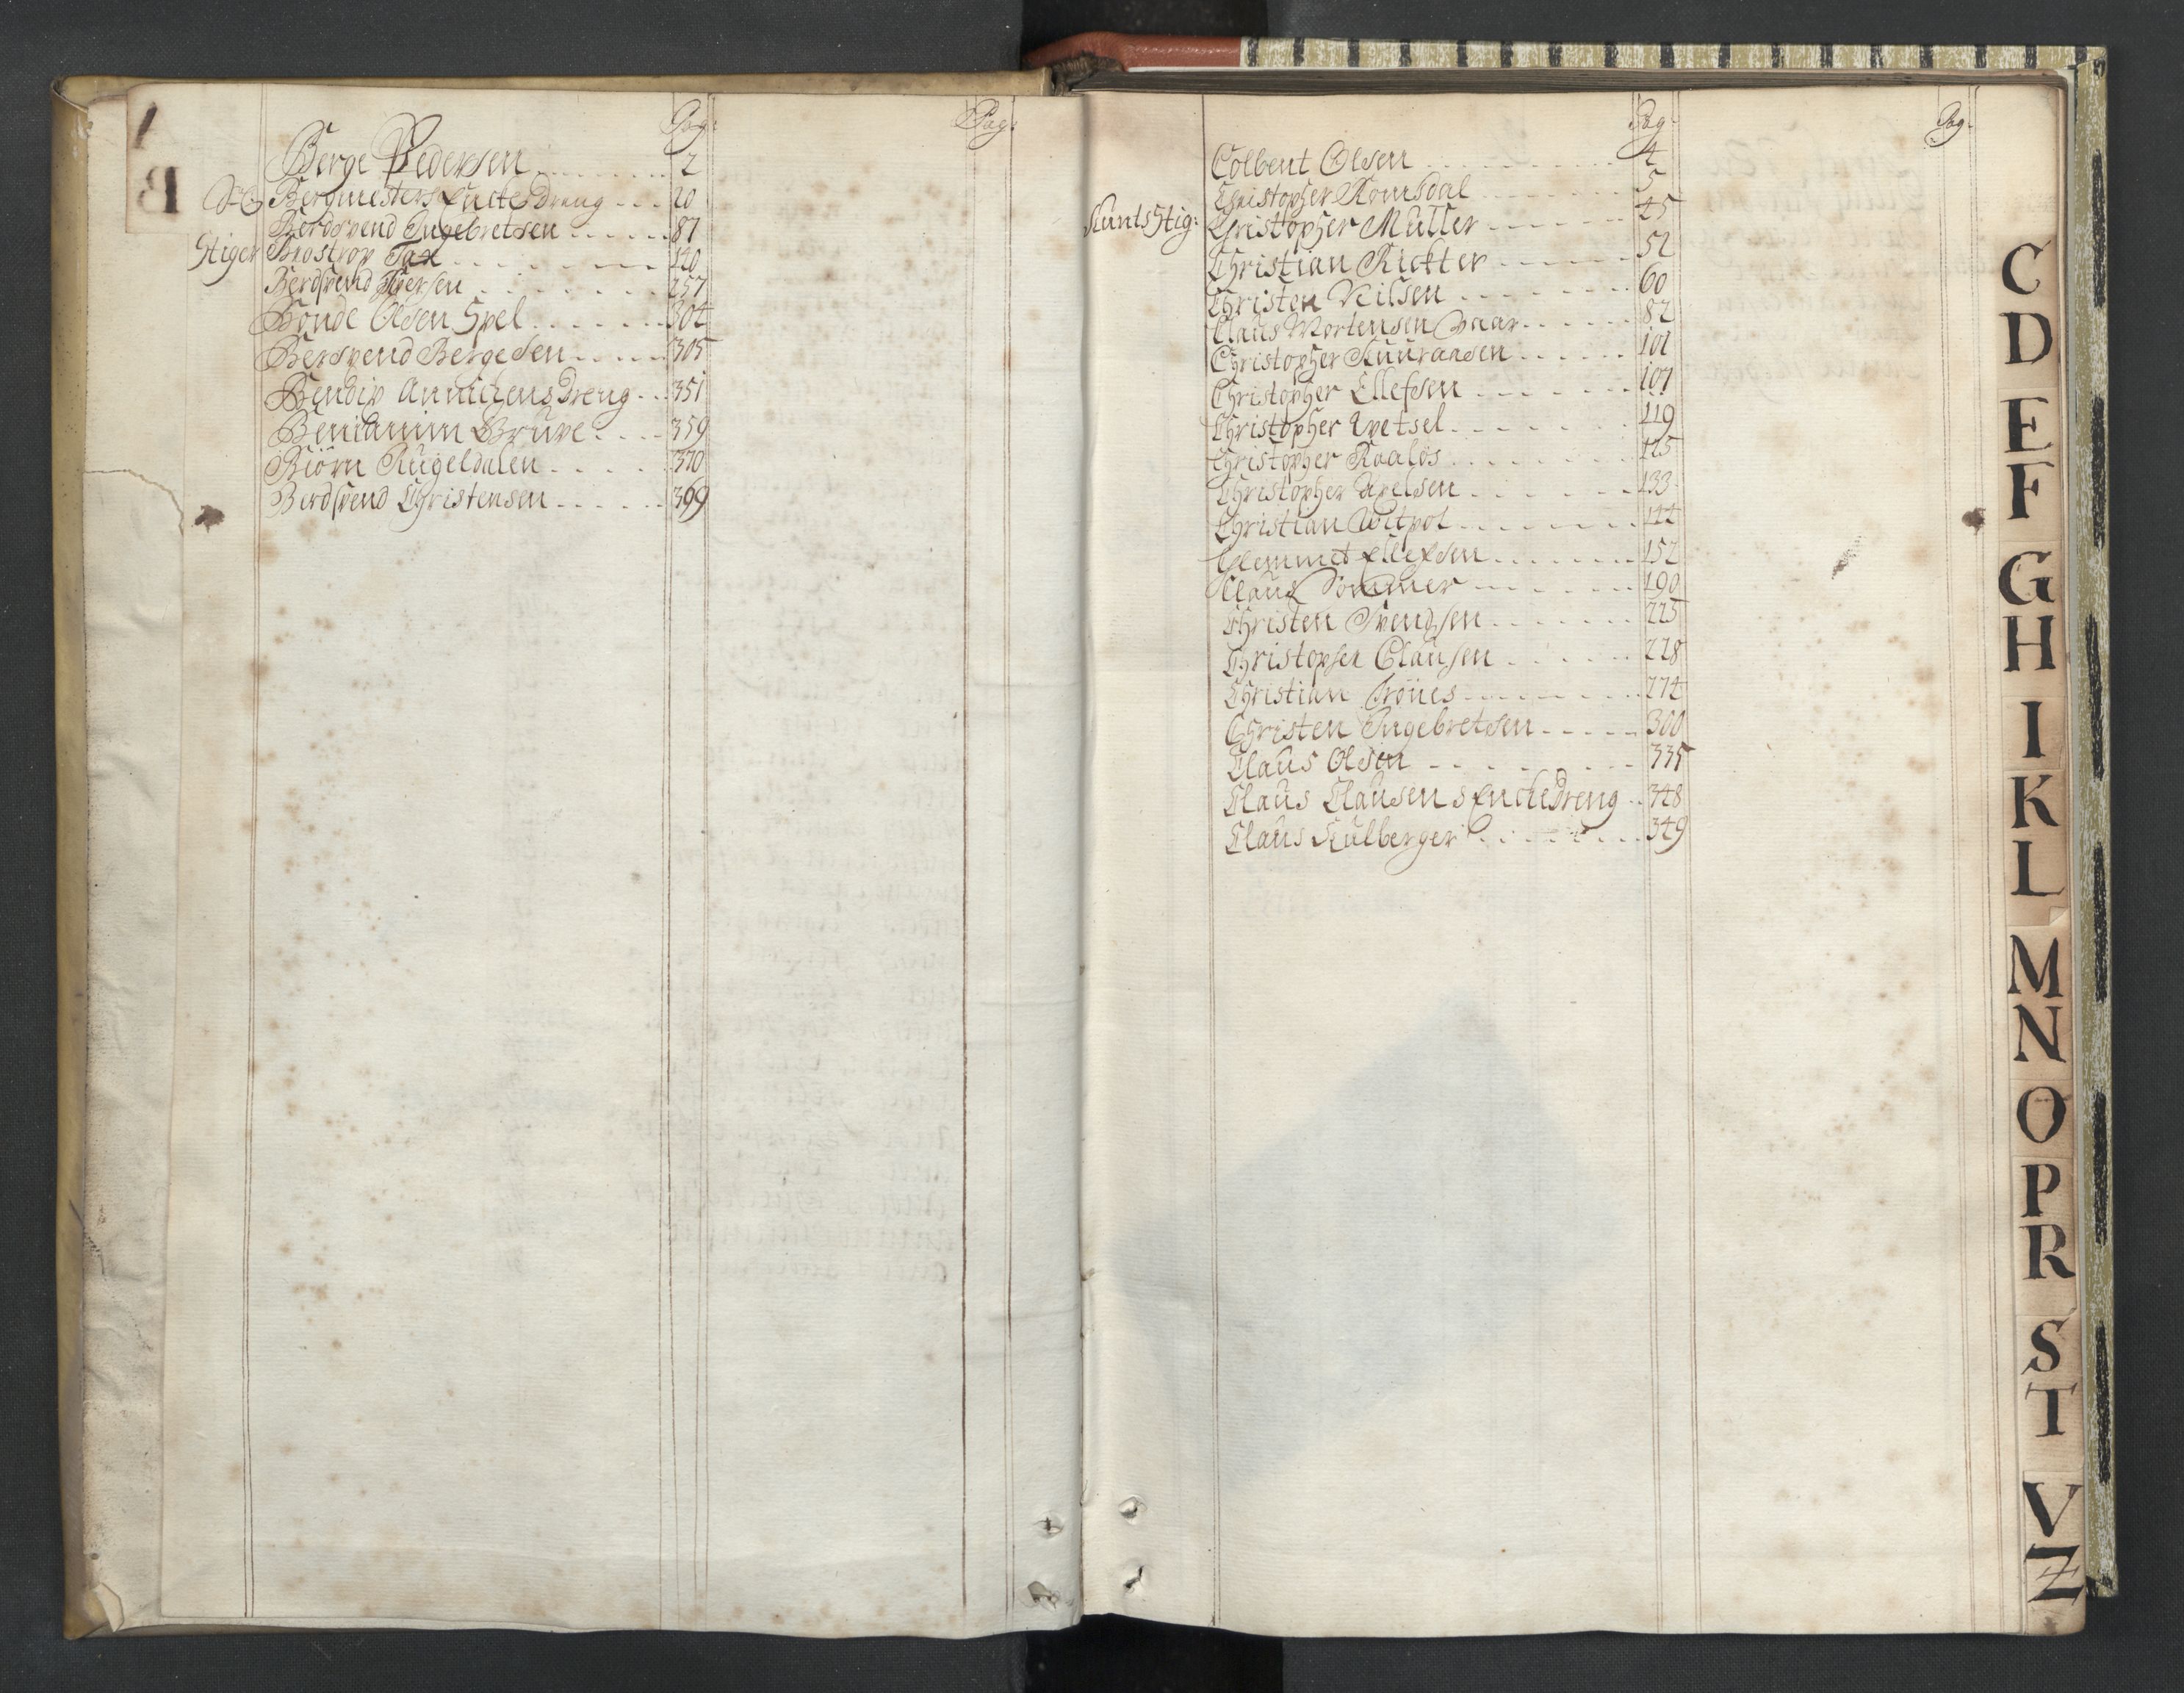 Pag: Pag:
Berge Pedersen 2
Bergmesters Encke Dreng 20
Berdsvend Ingebretsen 87
Stiger Brostrop Tax 120
Berdsvend Iversen 257
Bonde Olsen Spel 304
Bersvend Bergesen 305
Bendix Dreng 351
Beniamin Gruve 359
Biörn Rugeldalen 370
Berdsvend Christensen 399
B
Pag: Pag:
Colbent Olsen 4
Christopher Romsdal 5
Kunts Stig: Christopher Müller 45
Christian Rickter 52
Christen Neilsen 60
Claus Mortensen 82
Christopher 101
Christopher Ellefsen 107
Christopher Wetsel 119
Christopher Raalös 125
Christopher Axelsen 133
Christian Witpot 144
Clemmet Ellefsen 152
Claus Sommer 190
Christen Svendsen 225
Christopher Clausen 228
Christian 274
Christen Ingebretsen 300
Claus Olsen 335
Claus Clausens Encke Dreng 348
Claus Kulberger 349
C
D
E
F
G
H
I
K
L
M
N
O
P
R
S
T
V
Z